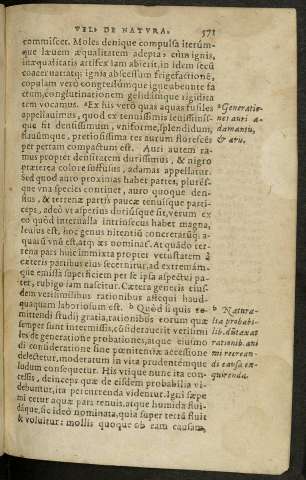 VEL DE NATVRA. 571
commiscet. Moles denique compulsa iterúm-
que læuem æqualitatem adepta: cùm ignis,
inæqualitatis artifex iam abierit, in idem secū
coacet nattatq; ignis abscessum frigefactionē,
copulam verò congressúmque igne abeunte fa
ctum, conglutinationem gelidámque rigidita
tem vocamus. ᵃ Ex his verò quas aquas fusiles
appellauimus, quod ex tenuissimis leuissimís-
que fit densissimum, vniforme, splendidum,
flauúmque, pretiosissima res aurum florescēs
per petram compactum est. Auri autem ra-
mus propter densitatem durissimus, & nigro
præterea colore suffusus, adamas appellatur.
Sed quod auro proximas habet partes, plurés-
que vna species continet, auro quoque den-
sius, & terrenæ partis paucæ tenuísque parti-
ceps, adeò vt asperius duriúsque sit, verum ex
eo quòd interualla intrinsecus habet magna,
leuius est, hoc genus nitentiū concretarúmq;
aquarū vnū est, atq; æs nominat. At quādo ter-
rena pars huic immixta propter vetustatem à
cæteris partibus eius secernitur, ad extremám-
que emissa superficiem per se ipsa aspectui pa-
tet, rubigo iam nascitur. Cætera generis eius-
dem verisimilibus rationibus assequi haud-
quaquam laboriosum est. ᵇ Quòd si quis re-
mittendi studij gratia, rationibus eorum quæ
semper sunt intermissis, cōsiderauerit verisimi
les de generatione probationes, atque eiusmo
di consideratione sine pœnitentiæ accessione
delectetur, moderatum in vita prudentémque
ludum consequetur. His vtique nunc ita con-
cessis, deinceps quæ de eisdem probabilia vi-
debuntur, ita percurrenda videntur. Igni sæpe
mixtæ aquæ pars tenuis, atque humida flui-
dáque, sic ideo nominata, quia super terrā fluit
& voluitur: mollis quoque ob eam causam,
ᵃ Generatio-
nes auri a-
damantis,
& æris.
ᵇ Natura-
lia probabi-
lib. aut exat
rationib. ani
mi recrean-
di causa ex-
quirenda.